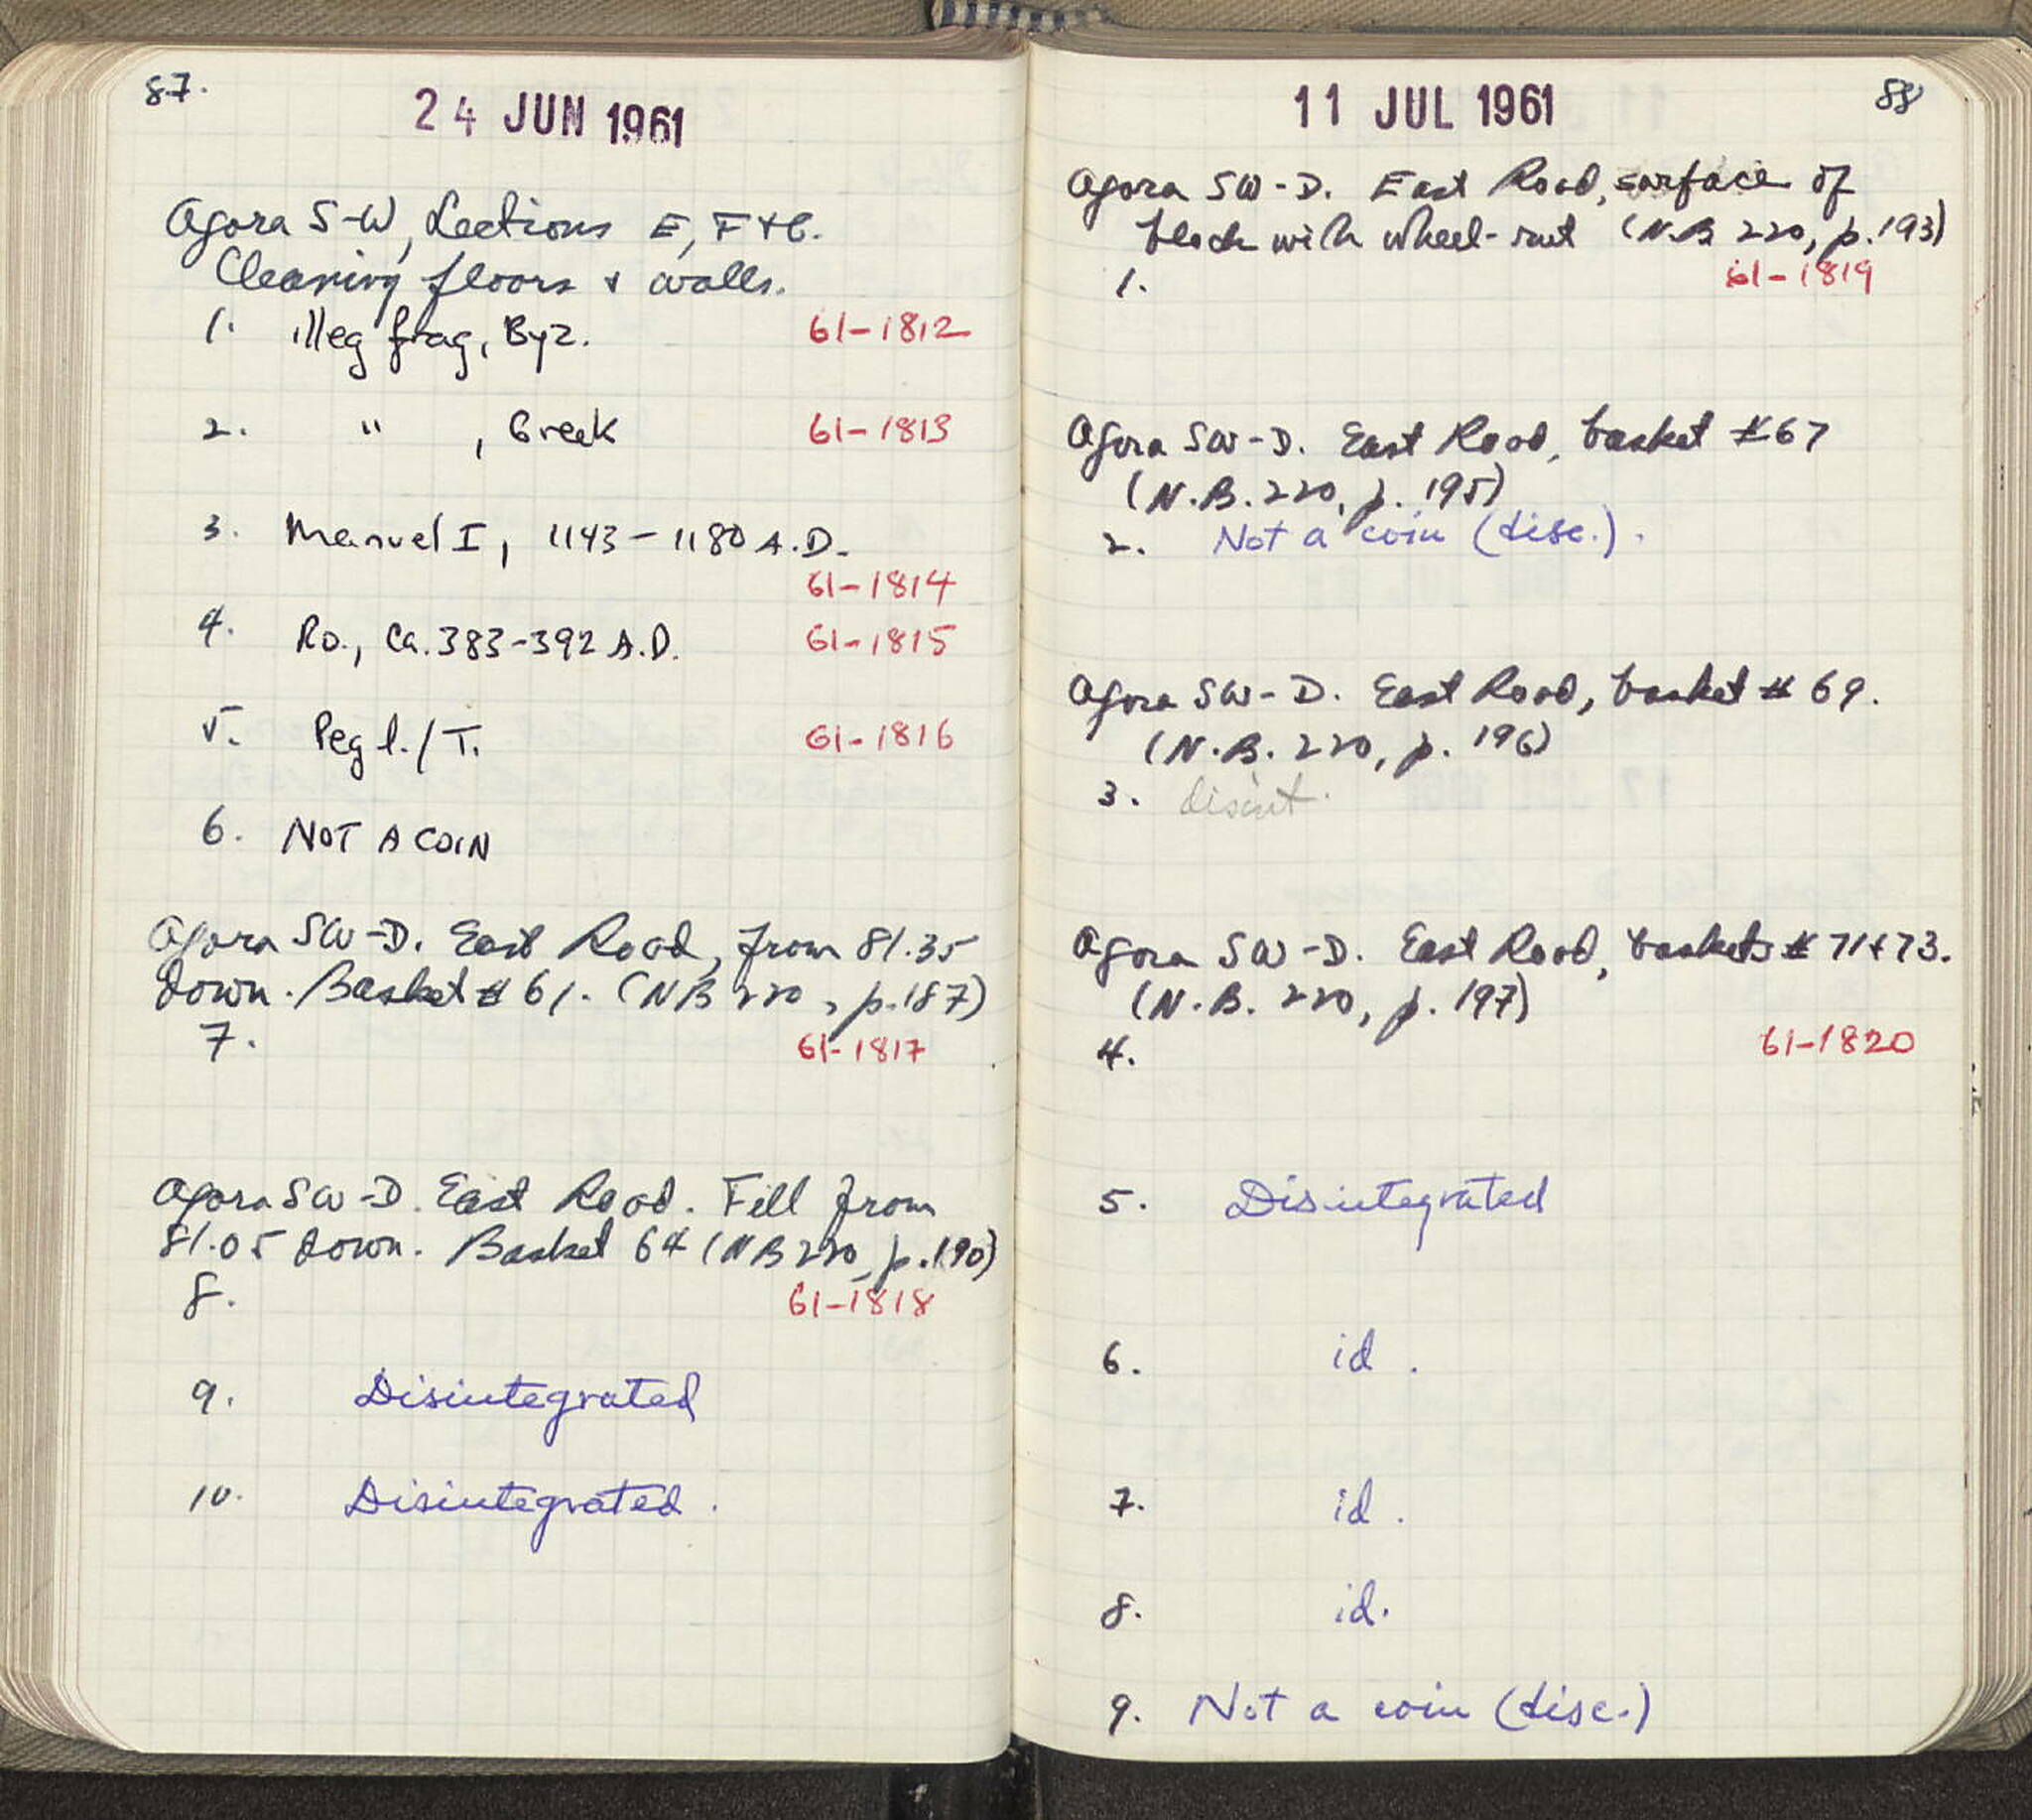 87.
24 JUN 1961
Agora S-W, Sections E, F + G.
Cleaning floors + walls.
1. illeg frag, Byz. 61-1812
2. " , Greek 61-1813
3. Manuel I, 1143-1180 A.D.
61-1814
4. Ro., Ca. 383-392 A.D. 61-1815
5. Peg l./T. 61-1816
6. NOT A COIN
Agora SW-D. East Road, from 81.35
down. Basket # 61. (NB 220, p. 187)
7. 61-1817
Agora SW-D. East Road. Fill from
81.05 down. Basket 64 (NB 220, p. 190)
8. 61-1818
9. Disintegrated
10. Disintegrated.
88
11 JUL 1961
Agora SW-D. East Road, surface of
block with wheel-rut (N.B 220, p. 193)
1. 61-1819
Agora SW-D. East Road, basket #67
(N.B. 220, p. 195)
2. Not a coin (disc.).
Agora SW-D. East Road, basket # 69.
(N.B. 220, p. 196)
3. disint.
Agora SW-D. East Road, baskets # 71+73.
(N.B. 220, p. 197)
4. 61-1820
5. Disintegrated
6. id.
7. id.
8. id.
9. Not a coin (disc.)